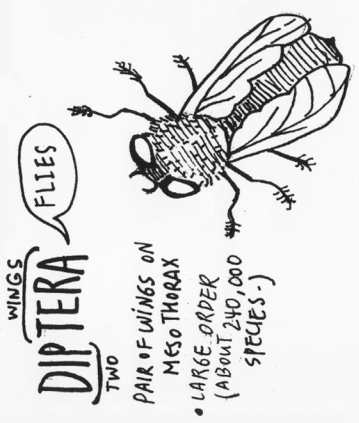 WINGS
DIPTERA
TWO
FLIES
PAIR OF WINGS ON
MESOTHORAX
• LARGE ORDER
(ABOUT 240,000
SPECIES.)